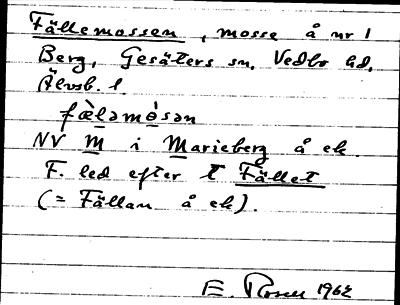 Fällemossen, mosse å nr 1
Berg, Gesäters sn, Vedbo hd,
Älvsb. l.
fæ̀ləmòsən
NV M i Marieberg å ek.
F. led efter t Fället
(= Fällan å ek).
E. Rosell 1962